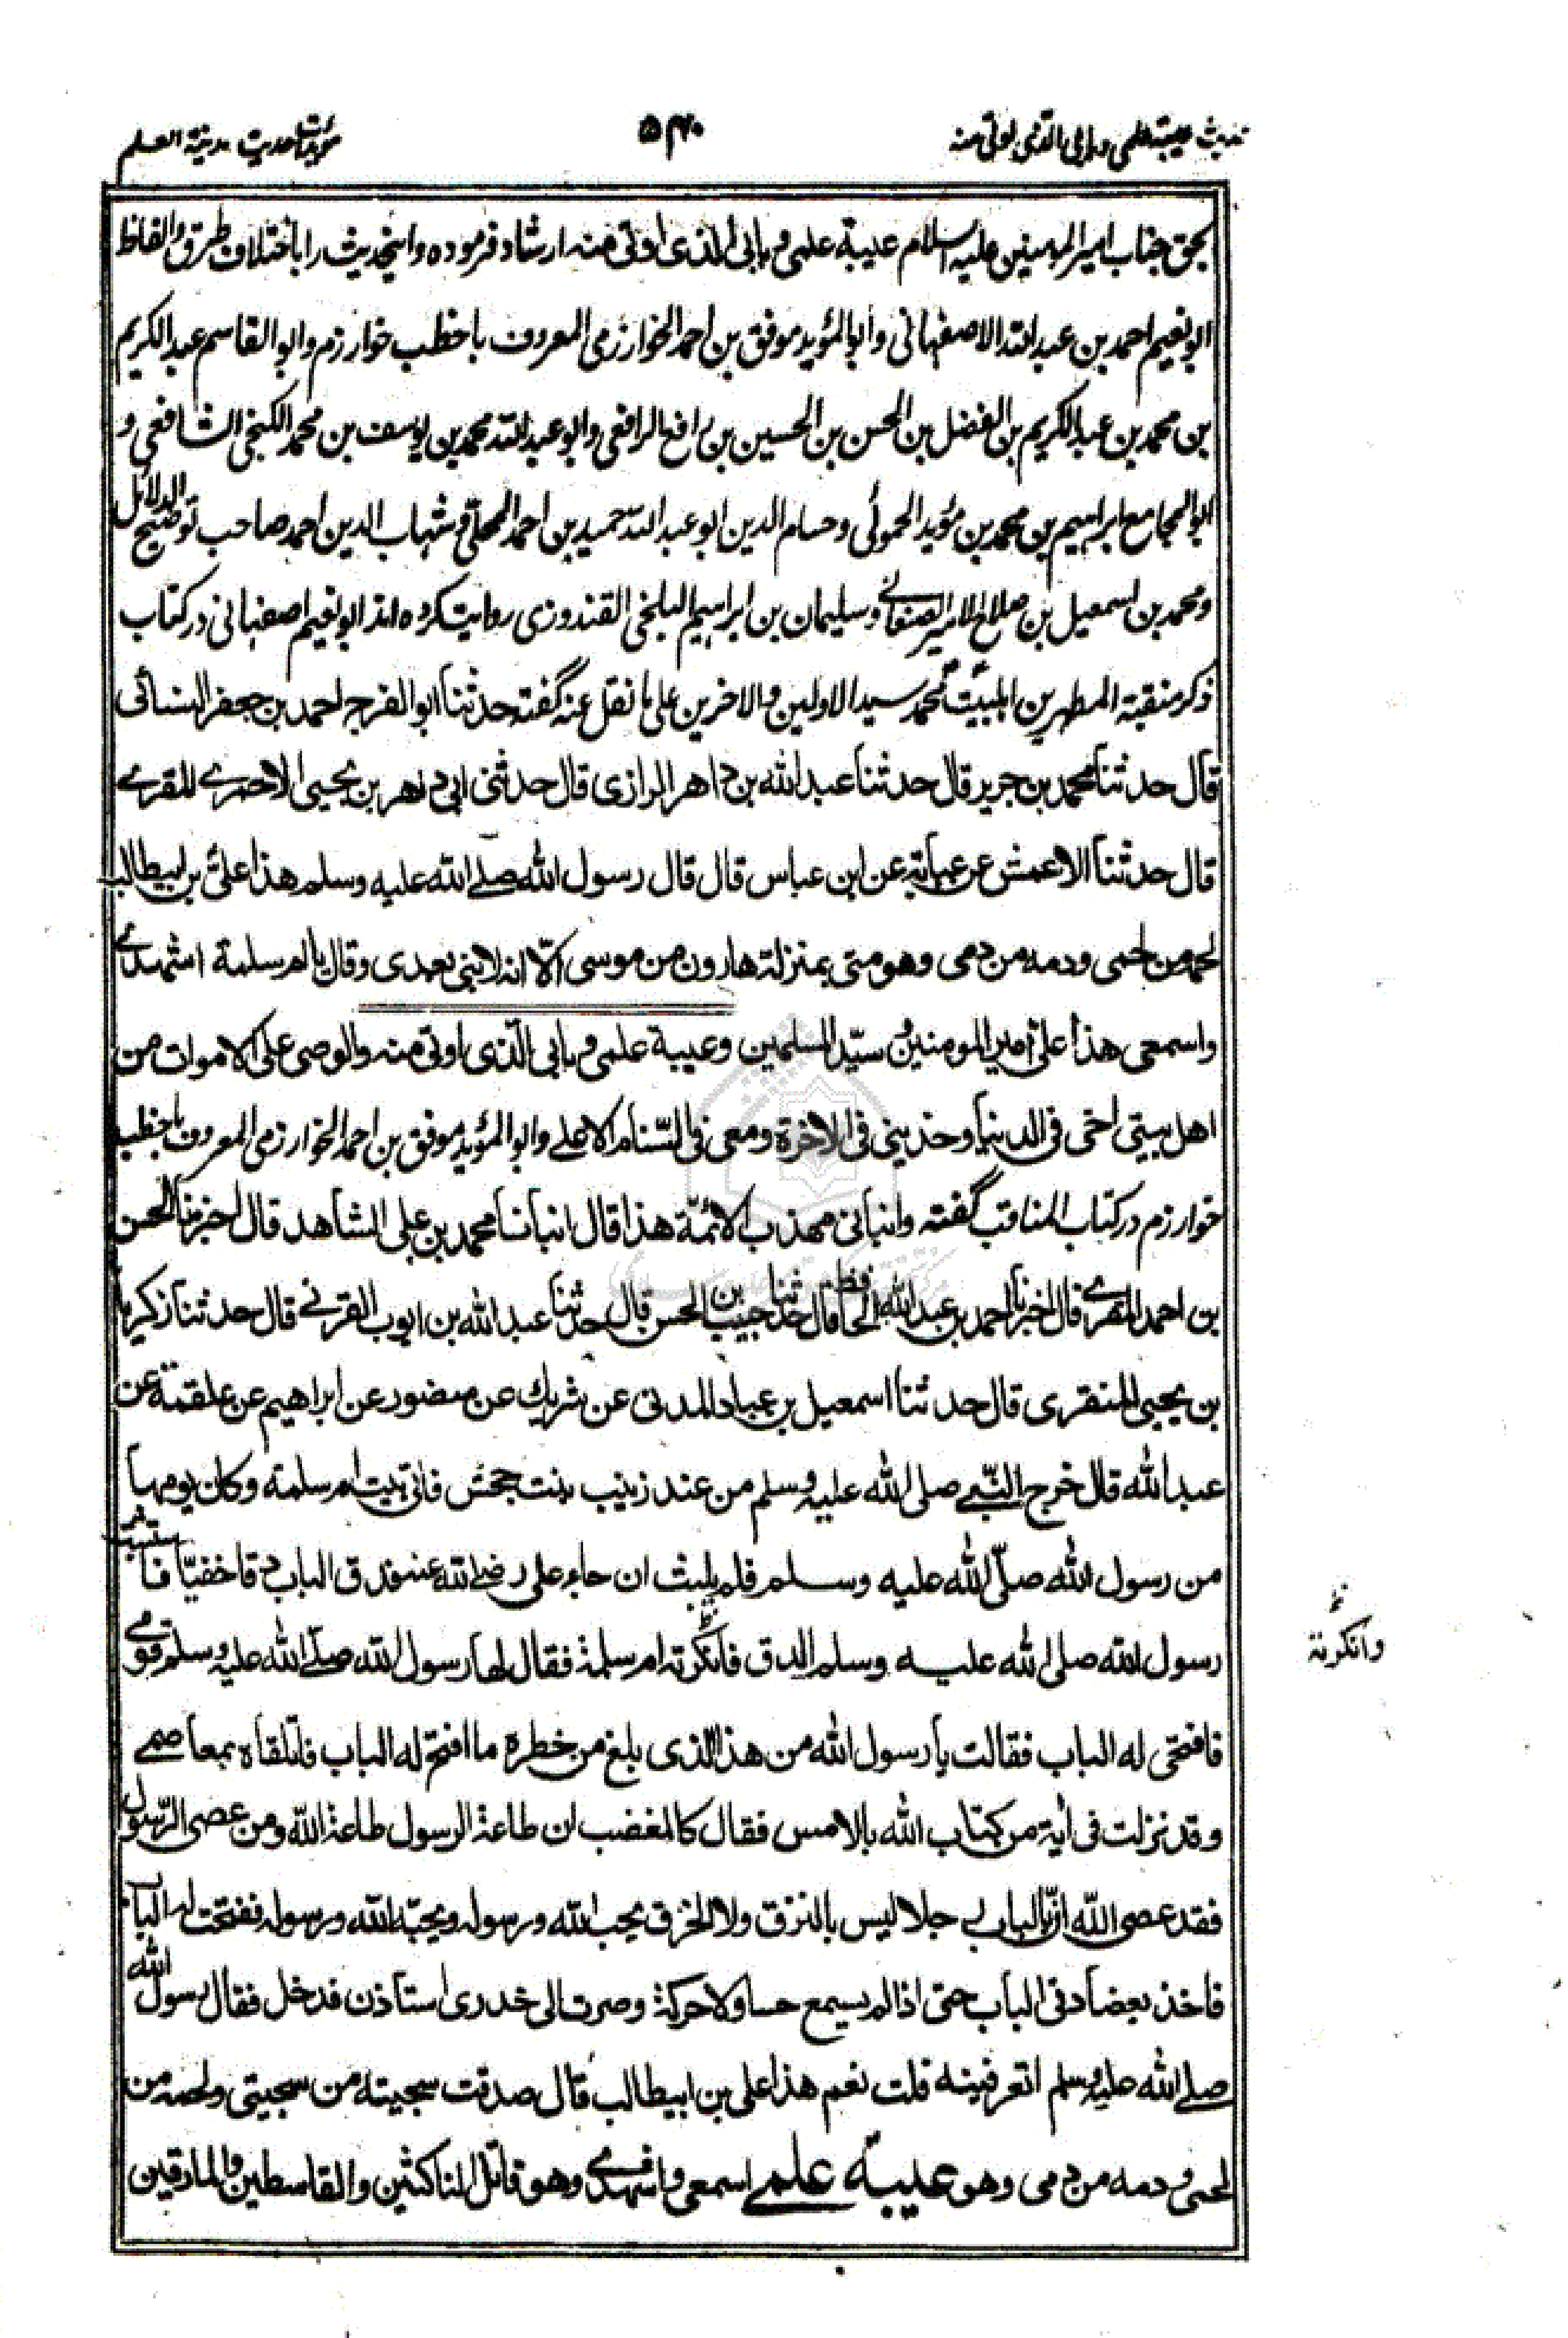 حدیث عیبة علمی وبابی الذی اوتی منه
۵۴۰
مؤیدات حدیث مدینة العلم
بحق جناب امیر المومنین علیه السلام عیبة علمی و بابی الذی اوتی منه ارشاد فرموده و اینحدیث را باختلاف طرق و الفاظ
ابو نعیم احمد بن عبد الله الاصفهانی و ابو المؤید موفق بن احمد الخوارزمی المعروف باخطب خوارزم و ابو القاسم عبد الکریم
بن محمد بن عبد الکریم بن الفضل بن الحسن بن الحسین بن رافع الرافعی و ابو عبد الله محمد بن یوسف بن محمد الکنجی الشافعی و
ابو المجامع ابراهیم بن محمد بن مؤید الحموئی و حسام الدین ابو عبد الله حمید بن احمد المحلی و شهاب الدین احمد صاحب توضیح الدلائل
و محمد بن اسمعیل بن صلاح الامیر الصنعانی و سلیمان بن ابراهیم البلخی القندوزی روایت کرده اند ابو نعیم اصفهانی در کتاب
ذکر منقبة المطهرین اهلبیت محمد سید الاولین و الاخرین علی ما نقل عنه گفته حدثنا ابو الفرج احمد بن جعفر النسائی
قال حدثنا محمد بن جریر قال حدثنا عبد الله بن داهر الرازی قال حدثنی ابی داهر بن یحیی الاحمری المقری
قال حدثنا الاعمش عن عبایة عن ابن عباس قال قال رسول الله صلی الله علیه وسلم هذا علی بن ابیطالب
لحمه من لحمی ودمه من دمی وهو منی بمنزلة هارون من موسی الا انه لا نبی بعدی وقال یا ام سلمة اشهدی
واسمعی هذا علی امیر المومنین و سید المسلمین وعیبة علمی و بابی الذی اوتی منه والوصی علی الاموات من
اهل بیتی اخی فی الدنیا وخدینی فی الاخرة ومعی فی السنام الاعلی و ابو المؤید موفق بن احمد الخوارزمی المعروف باخطب
خوارزم در کتاب المناقب گفته وانبانی مهذب الائمة هذا قال انبانا محمد بن علی الشاهد قال اخبرنا الحسن
بن احمد المقری قال اخبرنا احمد بن عبد الله الحافظ قال حدثنا حبیب بن الحسن قال حدثنا عبد الله بن ایوب القرنی قال حدثنا زکریا
بن یحیی المنقری قال حدثنا اسمعیل بن عباد المدنی عن شریک عن منصور عن ابراهیم عن علقمة عن
عبد الله قال خرج النبی صلی الله علیه وسلم من عند زینب بنت جحش فاتی بیت ام سلمة وکان یومها
من رسول الله صلی الله علیه وسلم فلم یلبث ان جاء علی رضی الله عنه فدق الباب دقا خفیا فاستثبت
رسول الله صلی الله علیه وسلم الدق فانکرته ام سلمة فقال لها رسول الله صلی الله علیه وسلم قومی
وانکرته
فافتحی له الباب فقالت یا رسول الله من هذا الذی بلغ من خطره ما افتح له الباب فاتلقاه بمعاصمی
وقد نزلت فی ایة من کتاب الله بالامس فقال کالمغضب ان طاعة الرسول طاعة الله ومن عصی الرسول
فقد عصی الله ان بالباب رجلا لیس بالنزق ولا الخرق یحب الله ورسوله ویحبه الله ورسوله ففتحت له الباب
فاخذ بعضادتی الباب حتی اذا لم یسمع حسا ولا حرکة وصرت الی خدری استاذن فدخل فقال رسول الله
صلی الله علیه وسلم اتعرفینه قلت نعم هذا علی بن ابیطالب قال صدقت سجیته من سجیتی ولحمه من
لحمی ودمه من دمی وهو عیبة علمی اسمعی واشهدی وهو قاتل الناکثین والقاسطین والمارقین